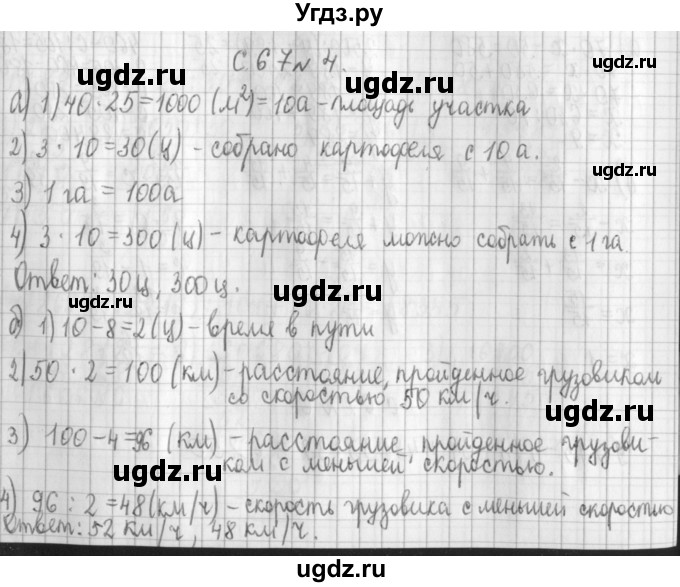 Угдз.ру
С. 67 № 4.
а) 1) 40 · 25 = 1000 (м²) = 10а – площадь участка
2) 3 · 10 = 30 (ц) – собрано картофеля с 10 а.
3) 1 га = 100а
4) 3 · 10 = 300 (ц) – картофеля можно собрать с 1 га.
Ответ: 30 ц, 300 ц.
б) 1) 10 – 8 = 2 (ц) – время в пути
2) 50 · 2 = 100 (км) – расстояние, пройденное грузовиком
со скоростью 50 км/ч.
3) 100 – 4 = 96 (км) – расстояние, пройденное грузови-
ком с меньшей скоростью.
4) 96 : 2 = 48 (км/ч) – скорость грузовика с меньшей скоростью
Ответ: 52 км/ч, 48 км/ч.
ugdz.ru
ugdz.ru
ugdz.ru
ugdz.ru
ugdz.ru
ugdz.ru
ugdz.ru
ugdz.ru
ugdz.ru
ugdz.ru
ugdz.ru